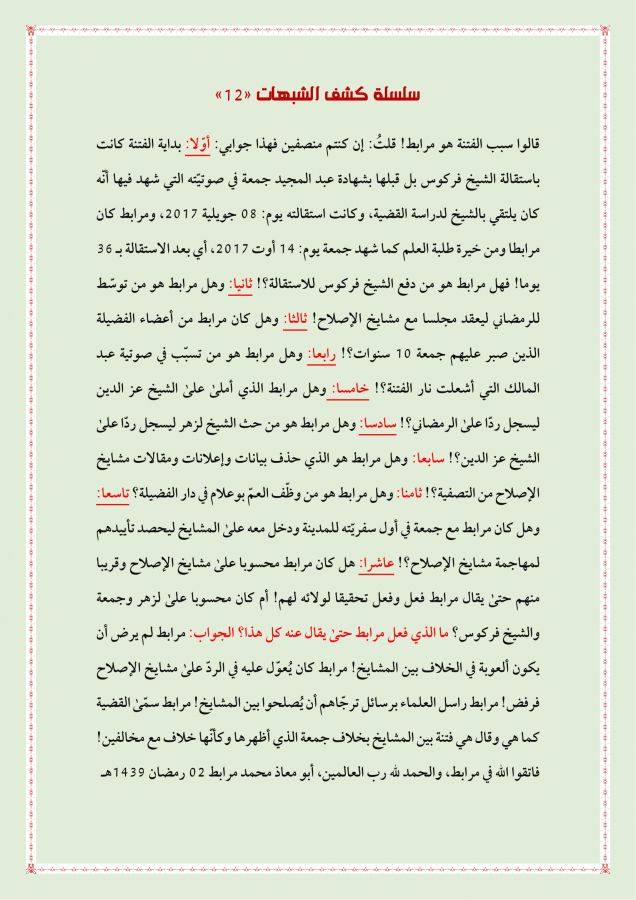 سلسلة كشف الشبهات «12»
قالوا سبب الفتنة هو مرابط! قلتُ: إن كنتم منصفين فهذا جوابي: أوّلا: بداية الفتنة كانت
باستقالة الشيخ فركوس بل قبلها بشهادة عبد المجيد جمعة في صوتيّته التي شهد فيها أنّه
كان يلتقي بالشيخ لدراسة القضية، وكانت استقالته يوم: 08 جويلية 2017، ومرابط كان
مرابطا ومن خيرة طلبة العلم كما شهد جمعة يوم: 14 أوت 2017، أي بعد الاستقالة بـ 36
يوما! فهل مرابط هو من دفع الشيخ فركوس للاستقالة؟! ثانيا: وهل مرابط هو من توسّط
للرمضاني ليعقد مجلسا مع مشايخ الإصلاح! ثالثا: وهل كان مرابط من أعضاء الفضيلة
الذين صبر عليهم جمعة 10 سنوات؟! رابعا: وهل مرابط هو من تسبّب في صوتية عبد
المالك التي أشعلت نار الفتنة؟! خامسا: وهل مرابط الذي أملىٰ علىٰ الشيخ عز الدين
ليسجل ردّا علىٰ الرمضاني؟! سادسا: وهل مرابط هو من حث الشيخ لزهر ليسجل ردّا علىٰ
الشيخ عز الدين؟! سابعا: وهل مرابط هو الذي حذف بيانات وإعلانات ومقالات مشايخ
الإصلاح من التصفية؟! ثامنا: وهل مرابط هو من وظّف العمّ بوعلام في دار الفضيلة؟ تاسعا:
وهل كان مرابط مع جمعة في أول سفريّته للمدينة ودخل معه علىٰ المشايخ ليحصد تأييدهم
لمهاجمة مشايخ الإصلاح؟! عاشرا: هل كان مرابط محسوبا علىٰ مشايخ الإصلاح وقريبا
منهم حتىٰ يقال مرابط فعل وفعل تحقيقا لولائه لهم! أم كان محسوبا علىٰ لزهر وجمعة
والشيخ فركوس؟ ما الذي فعل مرابط حتىٰ يقال عنه كل هذا؟ الجواب: مرابط لم يرض أن
يكون ألعوبة في الخلاف بين المشايخ! مرابط كان يُعوّل عليه في الردّ علىٰ مشايخ الإصلاح
فرفض! مرابط راسل العلماء برسائل ترجّاهم أن يُصلحوا بين المشايخ! مرابط سمّىٰ القضية
كما هي وقال هي فتنة بين المشايخ بخلاف جمعة الذي أظهرها وكأنّها خلاف مع مخالفين!
فاتقوا الله في مرابط، والحمد لله رب العالمين، أبو معاذ محمد مرابط 02 رمضان 1439هـ